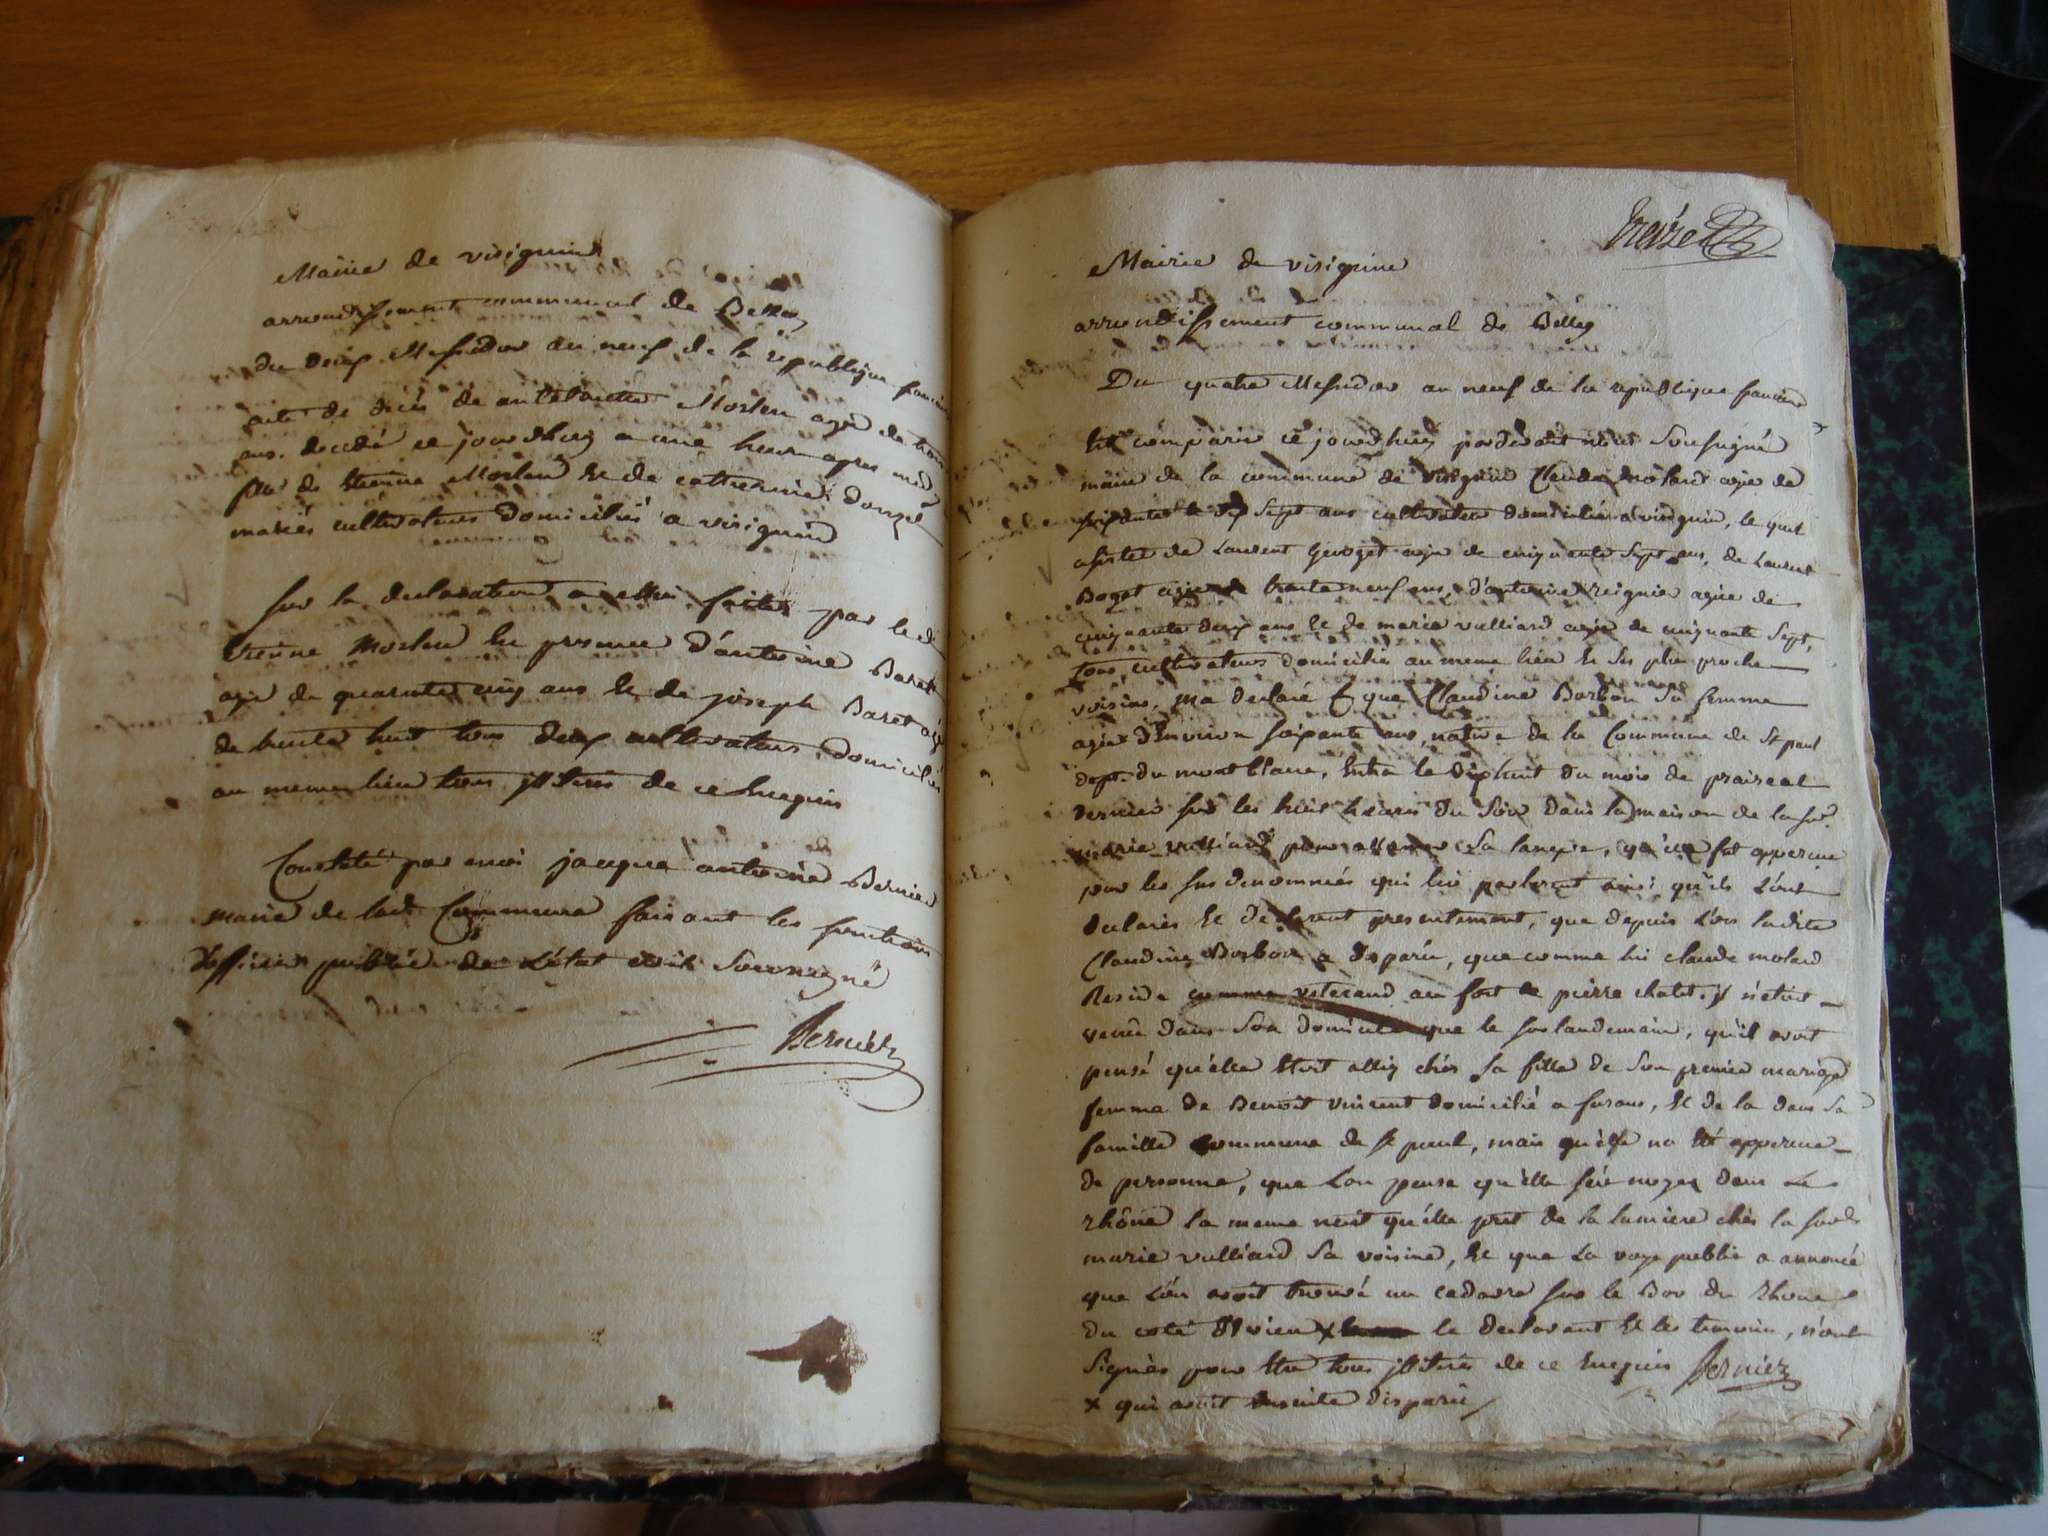 Mairie de virignin
arrondissement communal de Belley
du deux Messidor an neuf de la republique francaise
acte de décés de Morlen agé de trois
ans. decedé ce jourdhuy a une heure apres midy
fils de Etienne Morlen et de catherine
mariés cultivateurs domiciliés a virignin
sur la declaration a moi faite par le dit
Etienne Morlen en presence d'antoine Baret
agé de quarante cinq ans et de joseph Baret agé
de trente huit tous deux cultivateurs domiciliés
au meme lieu tous illitirés de ce Enequis
Constaté par moi jacque antoine Bernier
maire de lad. Commune faisant les fonctions
d'officier public de L'état civil Soussigné
Bernier
treize
Mairie de virignin
arrondissement communal de Belley
Du quatre Messidor an neuf de la republique francaise
Est comparu ce jourdhuy pardevant nous Soussigné
maire de la commune de virignin Claude molard agé de
sept ans cultivateur domicilié a virignin, le quel
assisté de Laurent agé de cinquante Sept ans, de Laurent
Boget agé de trente neuf ans, d'antoine reignier agée de
cinquante deux ans et de marie vulliard agée de cinquante Sept,
tous cultivateurs domiciliés au meme lieu et ses plus proche
voisins, ma declaré que Claudine Borbon sa femme
agée d'Environ soixante ans, native de la Commune de St paul
dept. du mont blanc, Entra le dixhuit du mois de prairéal
dernier sur les huit heures du Soir dans la maison de la sus.
marie vulliard pour allumer sa lampe, qu'elle fut apperçue
par les sus denommés qui lui parlerent ainsi qu'ils L'ont
declarés et declarent presentement, que depuis L'ors ladite
Claudine Borbon a disparue, que comme lui claude molard
Reside comme veterand au fort de pierre chatel. il n'etoit
venû dans son domicile que le surlandemain, qu'il avoit
pensé qu'elle Etoit alléz chés sa fille de Son premier mariage
femme de Benoit vincent domicilié a furans, et de la dans sa
famille commune de St paul, mais qu'elle na Eté apperçue
de personne, que L'on pense qu'elle s'est noyez dans Le
rhône la meme nuit qu'elle prit de la lumiere chés la susd.
marie vulliard sa voisine, et que La voye public a annoncée
que L'on avoit trouvé un cadavre sur le Bor du Rhone
du coté x le declarant et les temoins, n'ont
Signés pour Etre tous illitirés de ce Enequis Bernier
x qui avoit Ensuite disparu